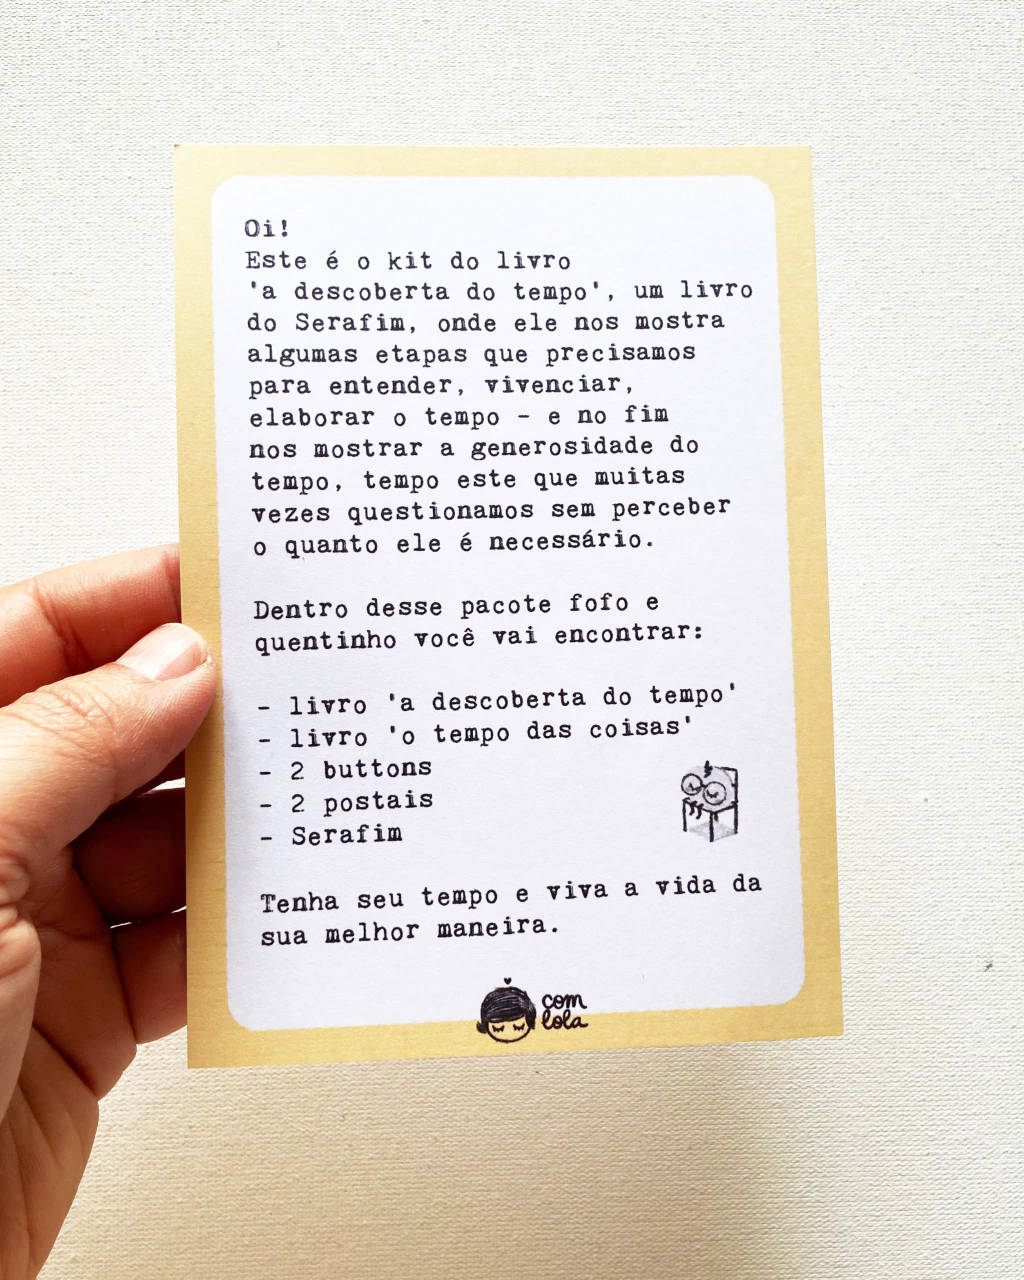 Oi!
Este é o kit do livro
'a descoberta do tempo', um livro
do Serafim, onde ele nos mostra
algumas etapas que precisamos
para entender, vivenciar,
elaborar o tempo - e no fim
nos mostrar a generosidade do
tempo, tempo este que muitas
vezes questionamos sem perceber
o quanto ele é necessário.

Dentro desse pacote fofo e
quentinho você vai encontrar:

- livro 'a descoberta do tempo'
- livro 'o tempo das coisas'
- 2 buttons
- 2 postais
- Serafim

Tenha seu tempo e viva a vida da
sua melhor maneira.

com
lola